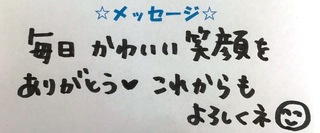 ☆メッセージ☆
毎日 かわいい笑顔を
ありがとう♥ これからも
よろしくネ☺